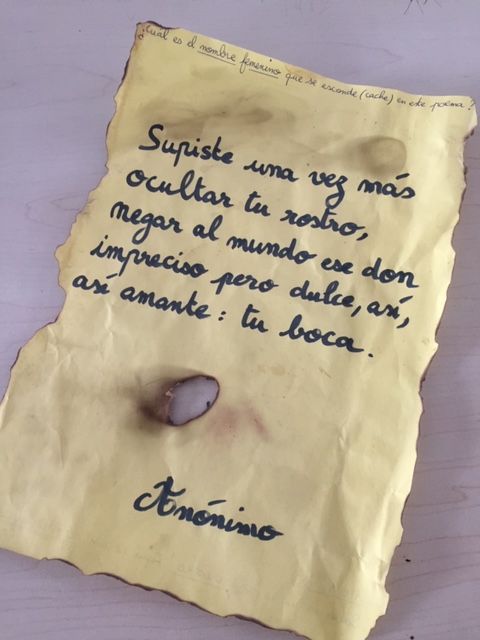 ¿Cuál es el nombre femenino que se esconde (cache) en este poema?
Supiste una vez más
ocultar tu rostro,
negar al mundo ese don
impreciso pero dulce, así,
así amante: tu boca.
Anónimo